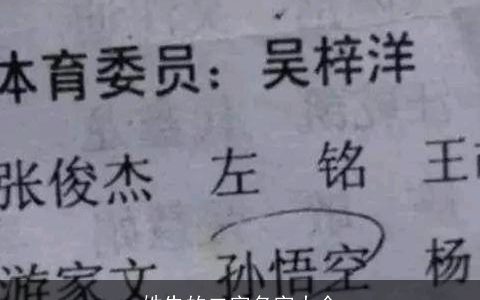 体育委员：吴梓洋
张俊杰 左 铭 王
游家文 孙悟空 杨